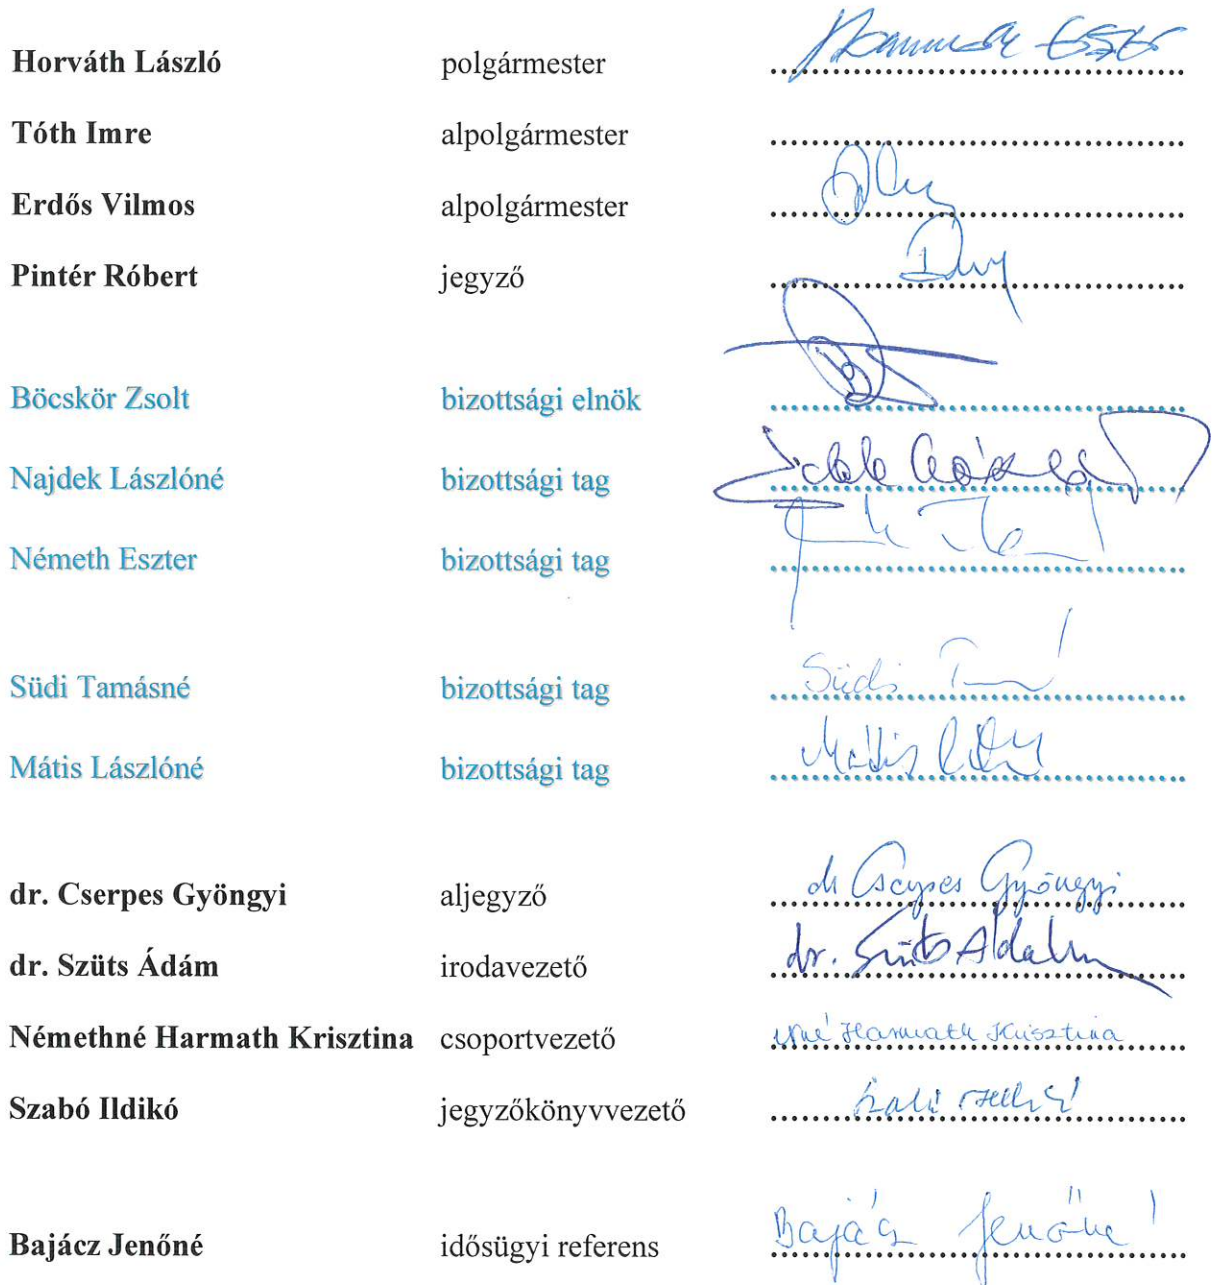 Horváth László polgármester
Tóth Imre alpolgármester
Erdős Vilmos alpolgármester
Pintér Róbert jegyző
Böcskör Zsolt bizottsági elnök
Najdek Lászlóné bizottsági tag
Németh Eszter bizottsági tag
Südi Tamásné bizottsági tag Südi
Mátis Lászlóné bizottsági tag Mátis
dr. Cserpes Gyöngyi aljegyző dr Cserpes Gyöngyi
dr. Szüts Ádám irodavezető dr. Szüts
Némethné Harmath Krisztina csoportvezető Harmath Krisztina
Szabó Ildikó jegyzőkönyvvezető
Bajácz Jenőné idősügyi referens Bajácz Jenőné